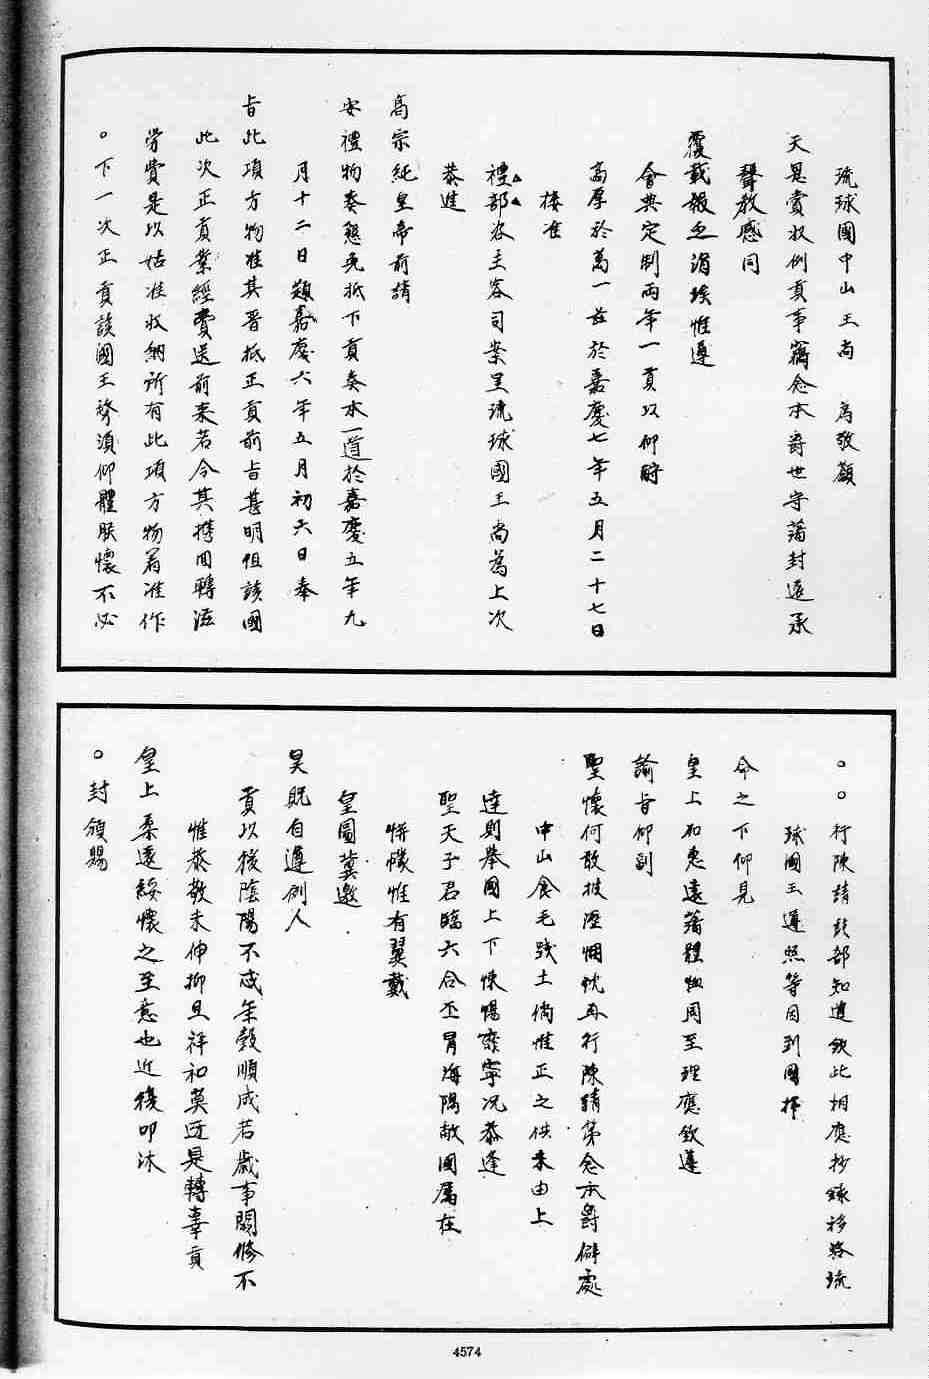 琉球國中山王尚　為敬籲
天恩賞收例貢事竊念本爵世守藩封遠承
聲教感同
覆載報乏涓埃惟遵
會典定制兩年一貢以仰酧
高厚於萬一茲於嘉慶七年五月二十七日
接准
禮部咨主客司案呈琉球國王尚為上次
恭進
高宗純皇帝前請
安禮物奏懇免抵下貢奏本一道於嘉慶五年九
月十二日題嘉慶六年五月初六日奉
旨此項方物准其晋抵正貢前旨甚明但該國
此次正貢業經費送前來若令其攜回轉滋
勞費是以姑准收納所有此項方物着准作
○下一次正貢該國王務須仰體朕懷不必
○○行陳請該部知道欽此相應抄錄移咨琉
球國王遵照等因到國捧
命之下仰見
皇上加惠遠藩體恤周至理應欽遵
諭旨仰副
聖懷何敢披瀝悃忱再行陳請第念本爵僻處
中山食毛踐土倘惟正之供未由上
達則舉國上下悚惕靡寧况恭逢
聖天子君臨六合丕冒海隅敝國属在
帡幪惟有翼戴
皇圖冀邀
昊貺自遵例入
貢以後陰陽不忒年穀順成若歲事闕修不
惟恭敬未伸抑且祥和莫迓是轉辜負
皇上柔遠綏懷之至意也近復叩沐
○封頒賜
4574